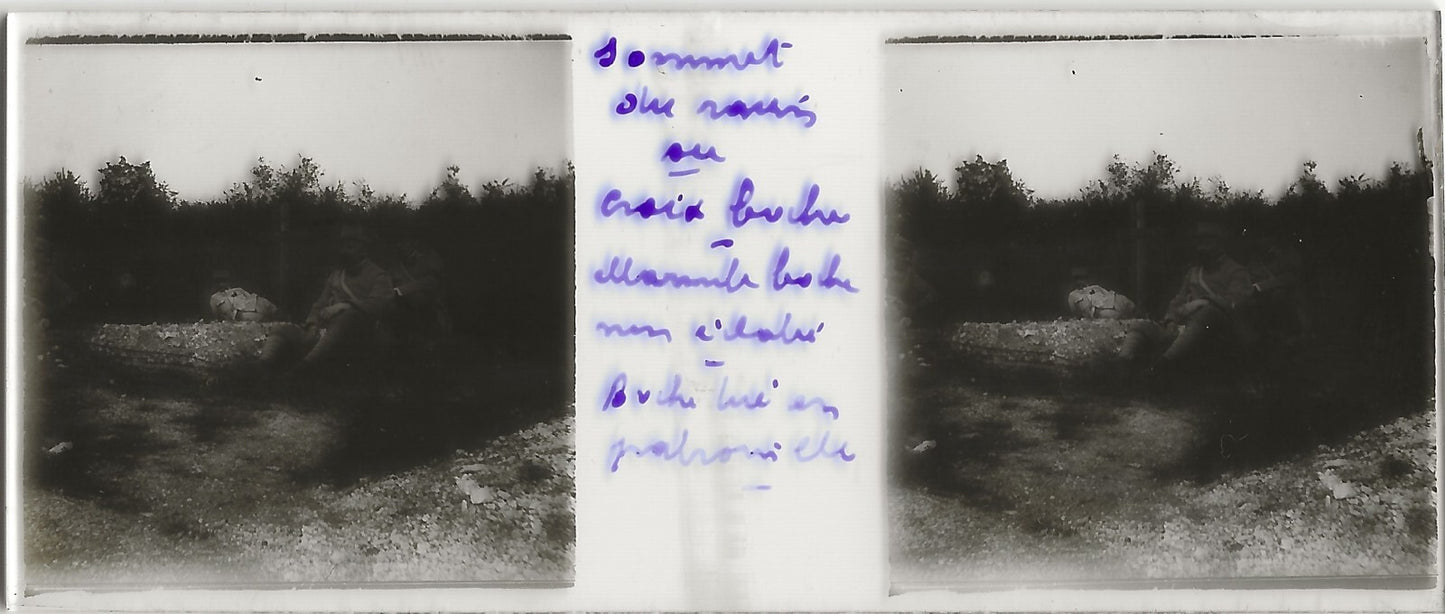 Sommet
du ravin
ou
croix boche
Marmite boche
non éclaté
Boche tué en
patrouille